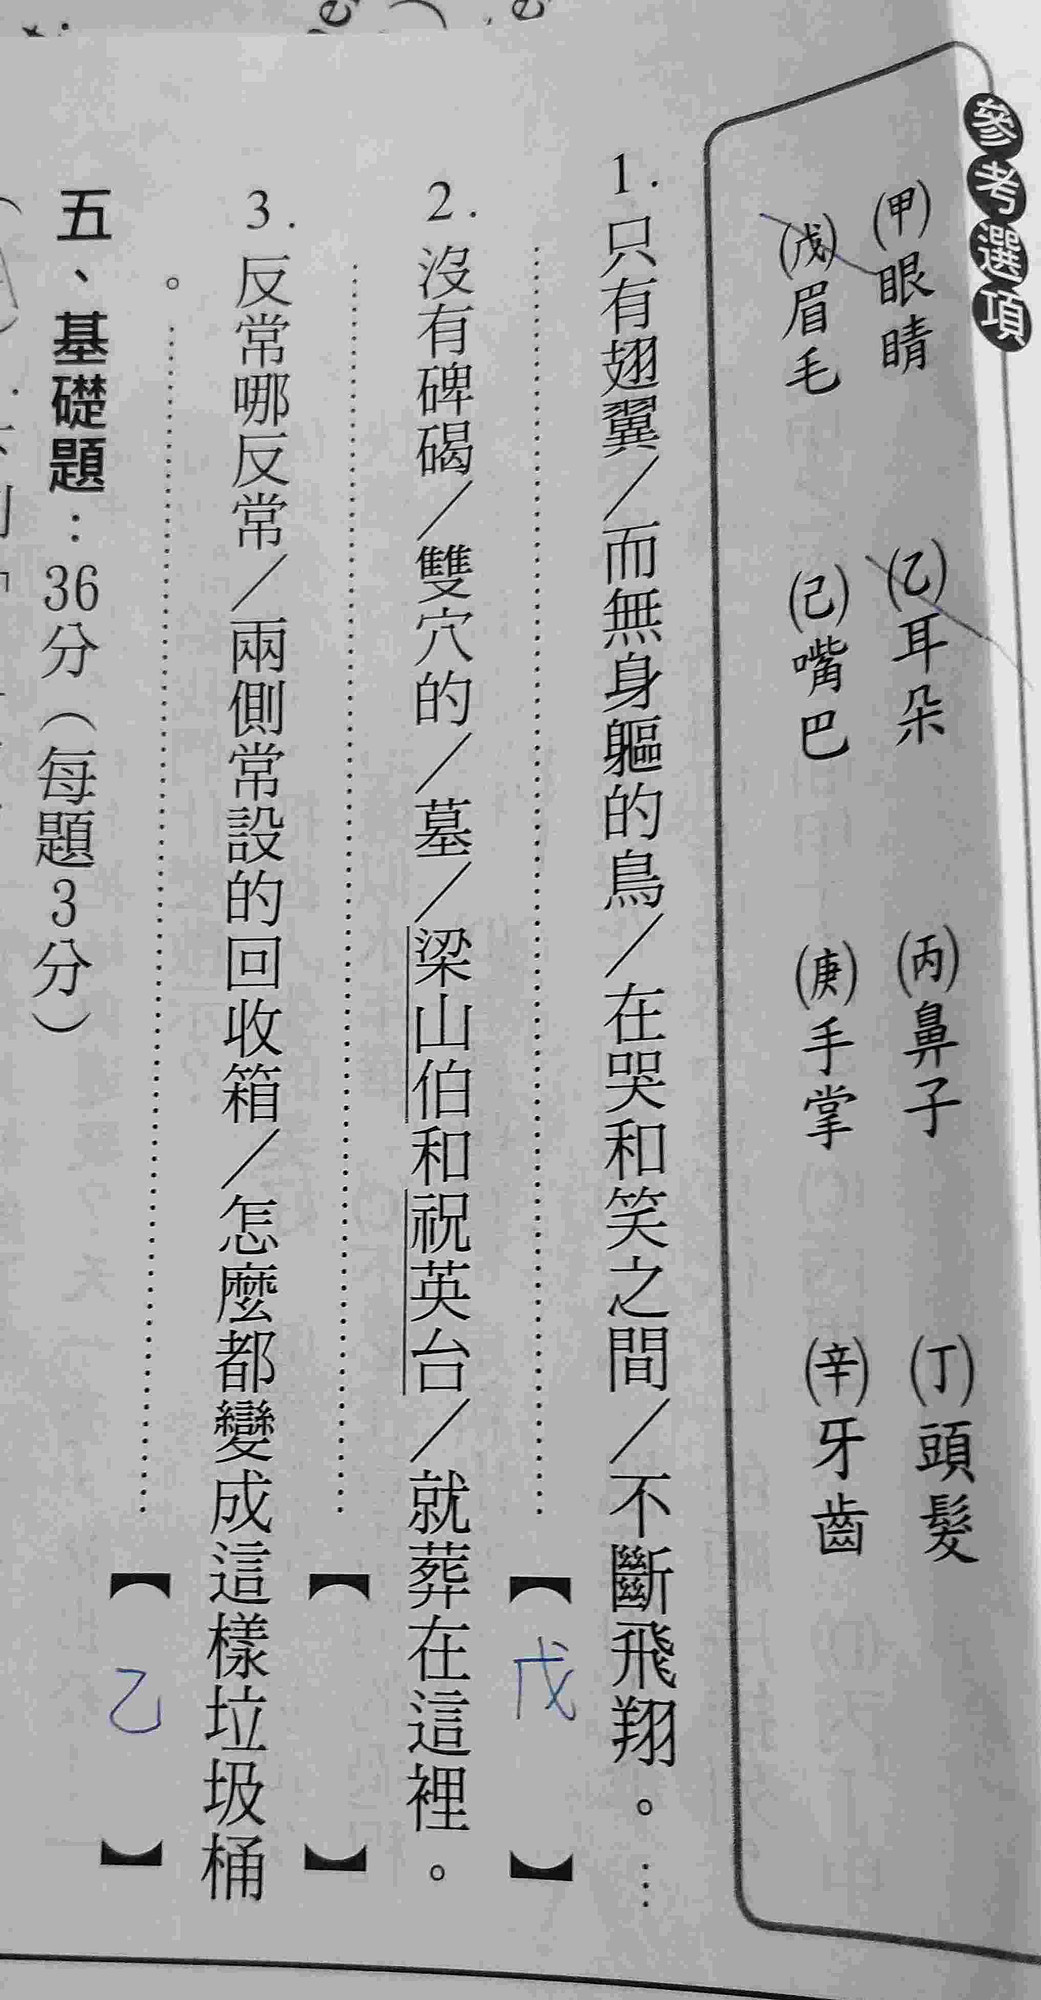 參考選項
(甲)眼睛 (乙)耳朵 (丙)鼻子 (丁)頭髮
(戊)眉毛 (己)嘴巴 (庚)手掌 (辛)牙齒
1.只有翅翼／而無身軀的鳥／在哭和笑之間／不斷飛翔。…
………………………………【戊】
2.沒有碑碣／雙穴的／墓／梁山伯和祝英台／就葬在這裡。
………………………………【 】
3.反常哪反常／兩側常設的回收箱／怎麼都變成這樣垃圾桶
。………………………………【乙】
五、基礎題：36分（每題3分）